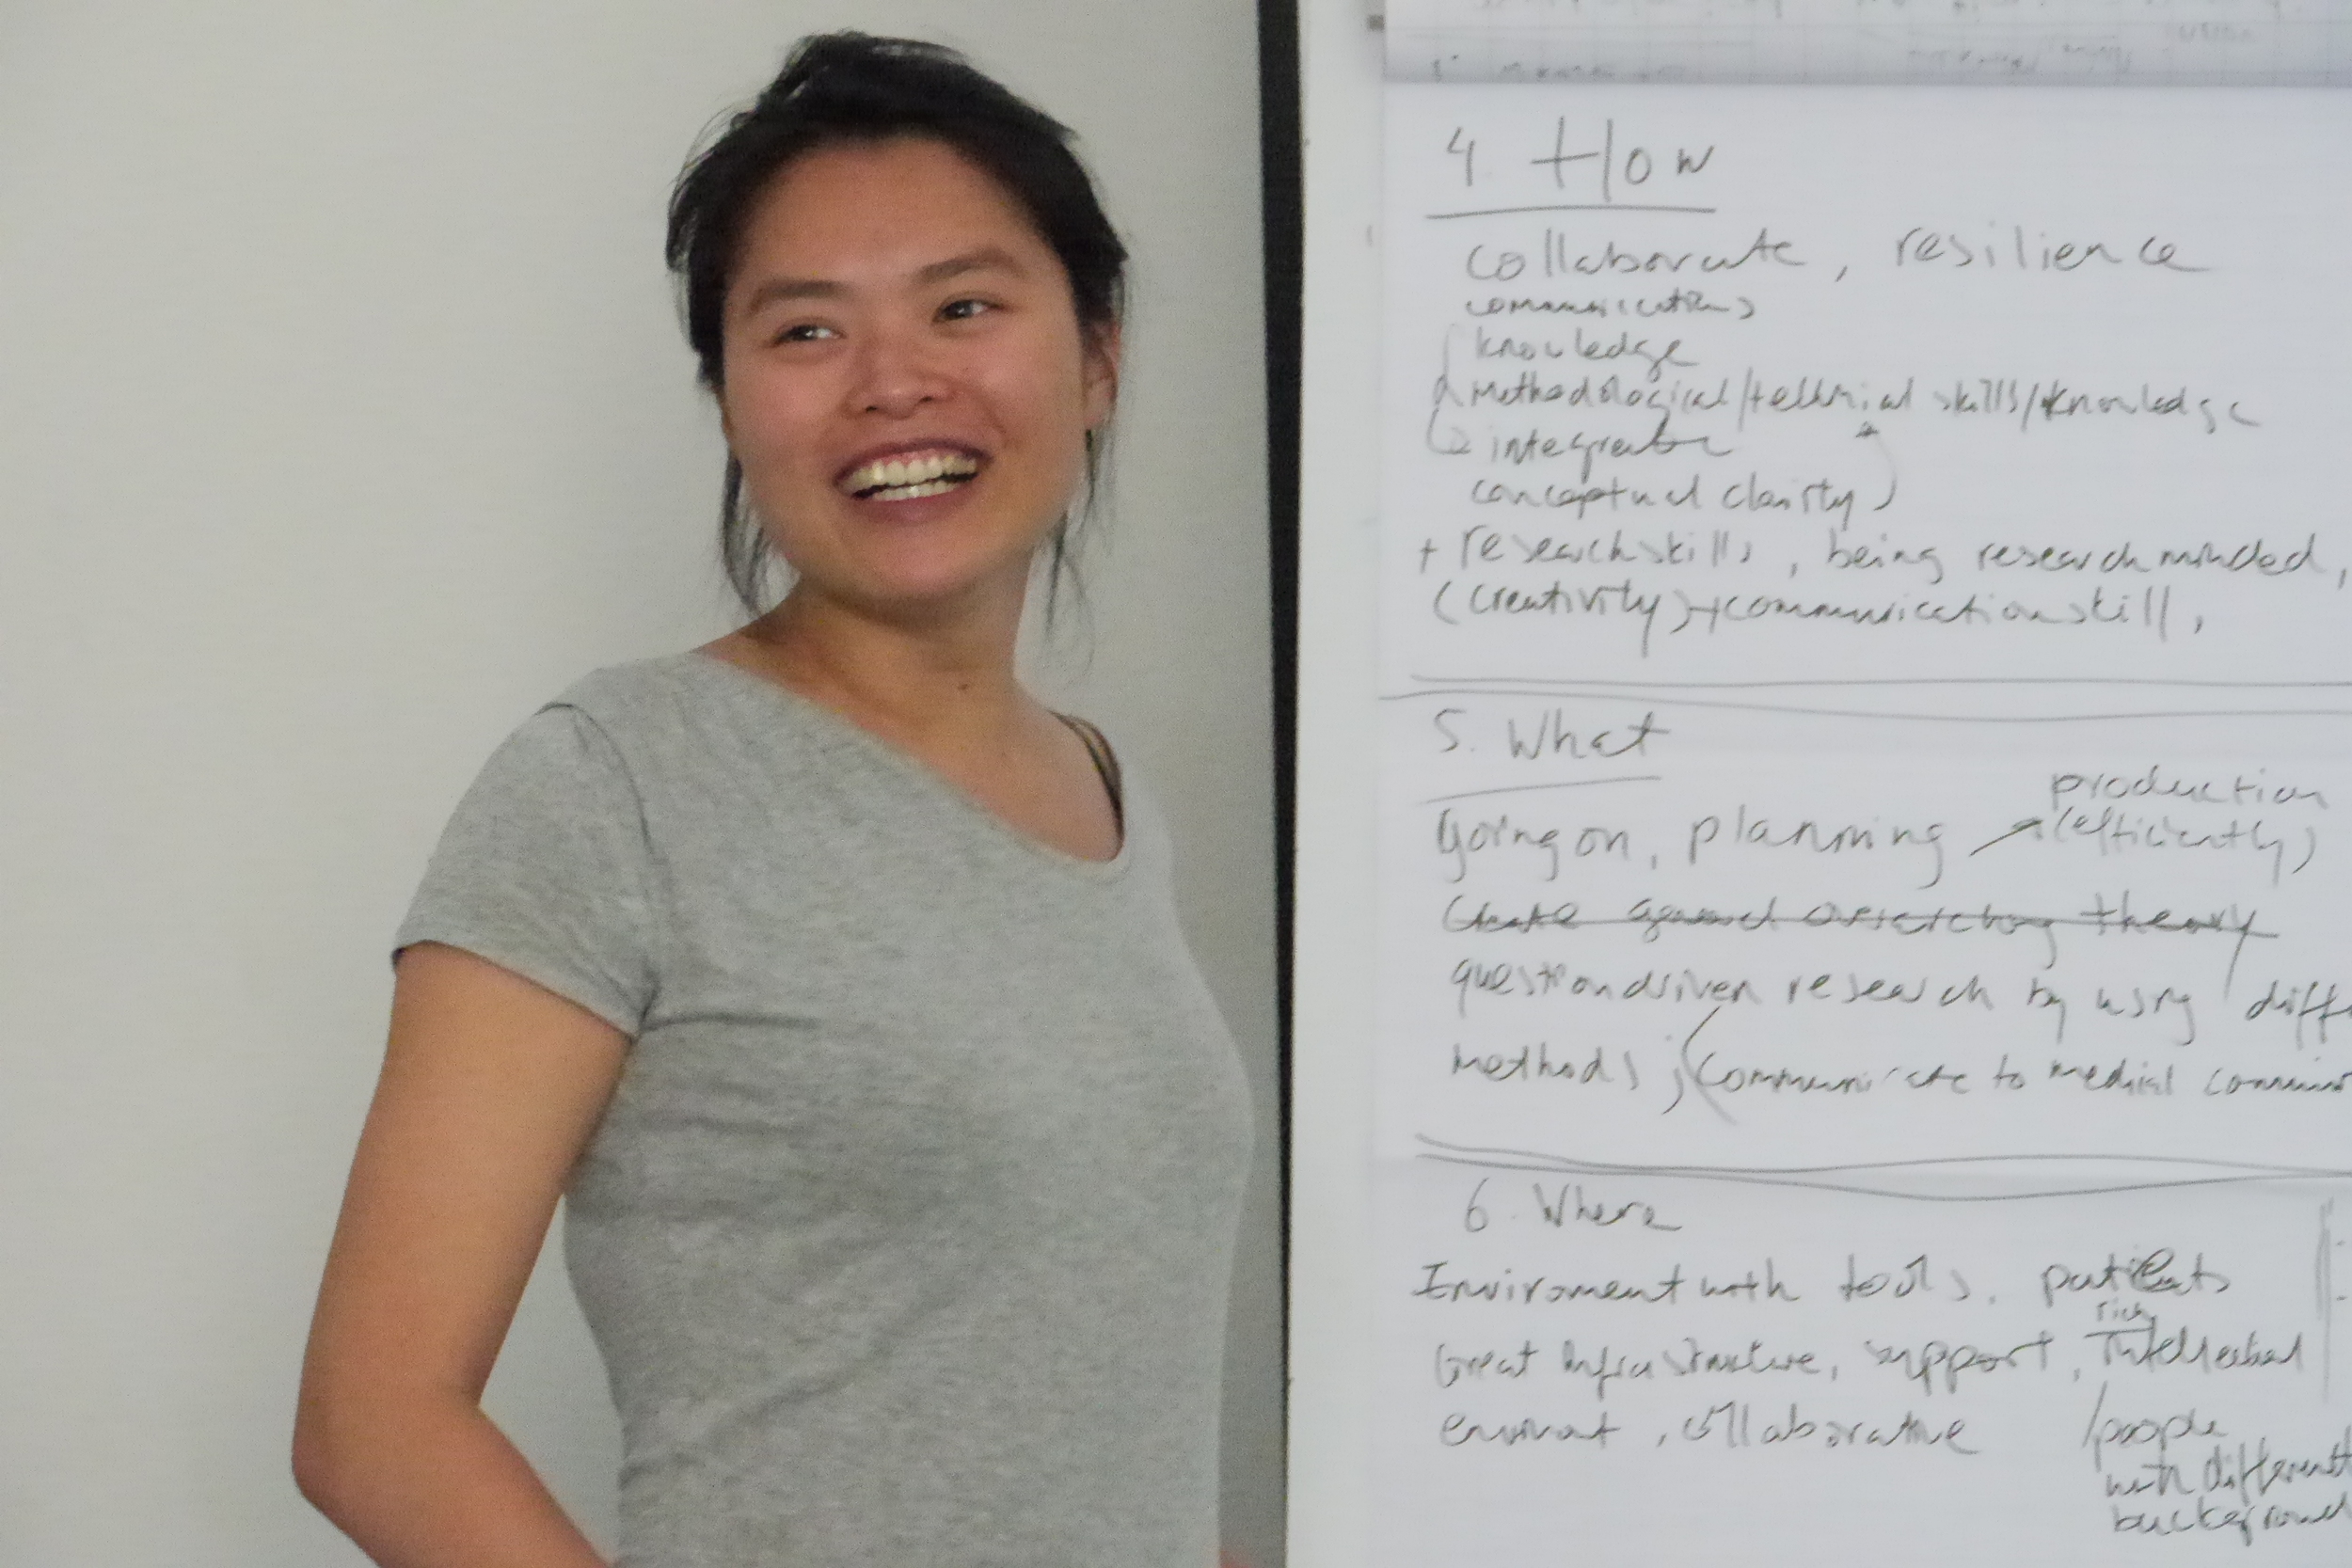 4 How
collaborate, resilience
communications
knowledge
Methodological/technical skills/knowledge
integrate
conceptual clarity
+ research skills, being research minded,
(creativity) + communication skill,
5. What
production
going on, planning (efficiently)
Create general overarching theory
question driven research by using
methods; communicate to medical
6. Where
Enviroment with tools, patients
rich
Great infrastructure, support, intellectual
collaborative /people
with different
background